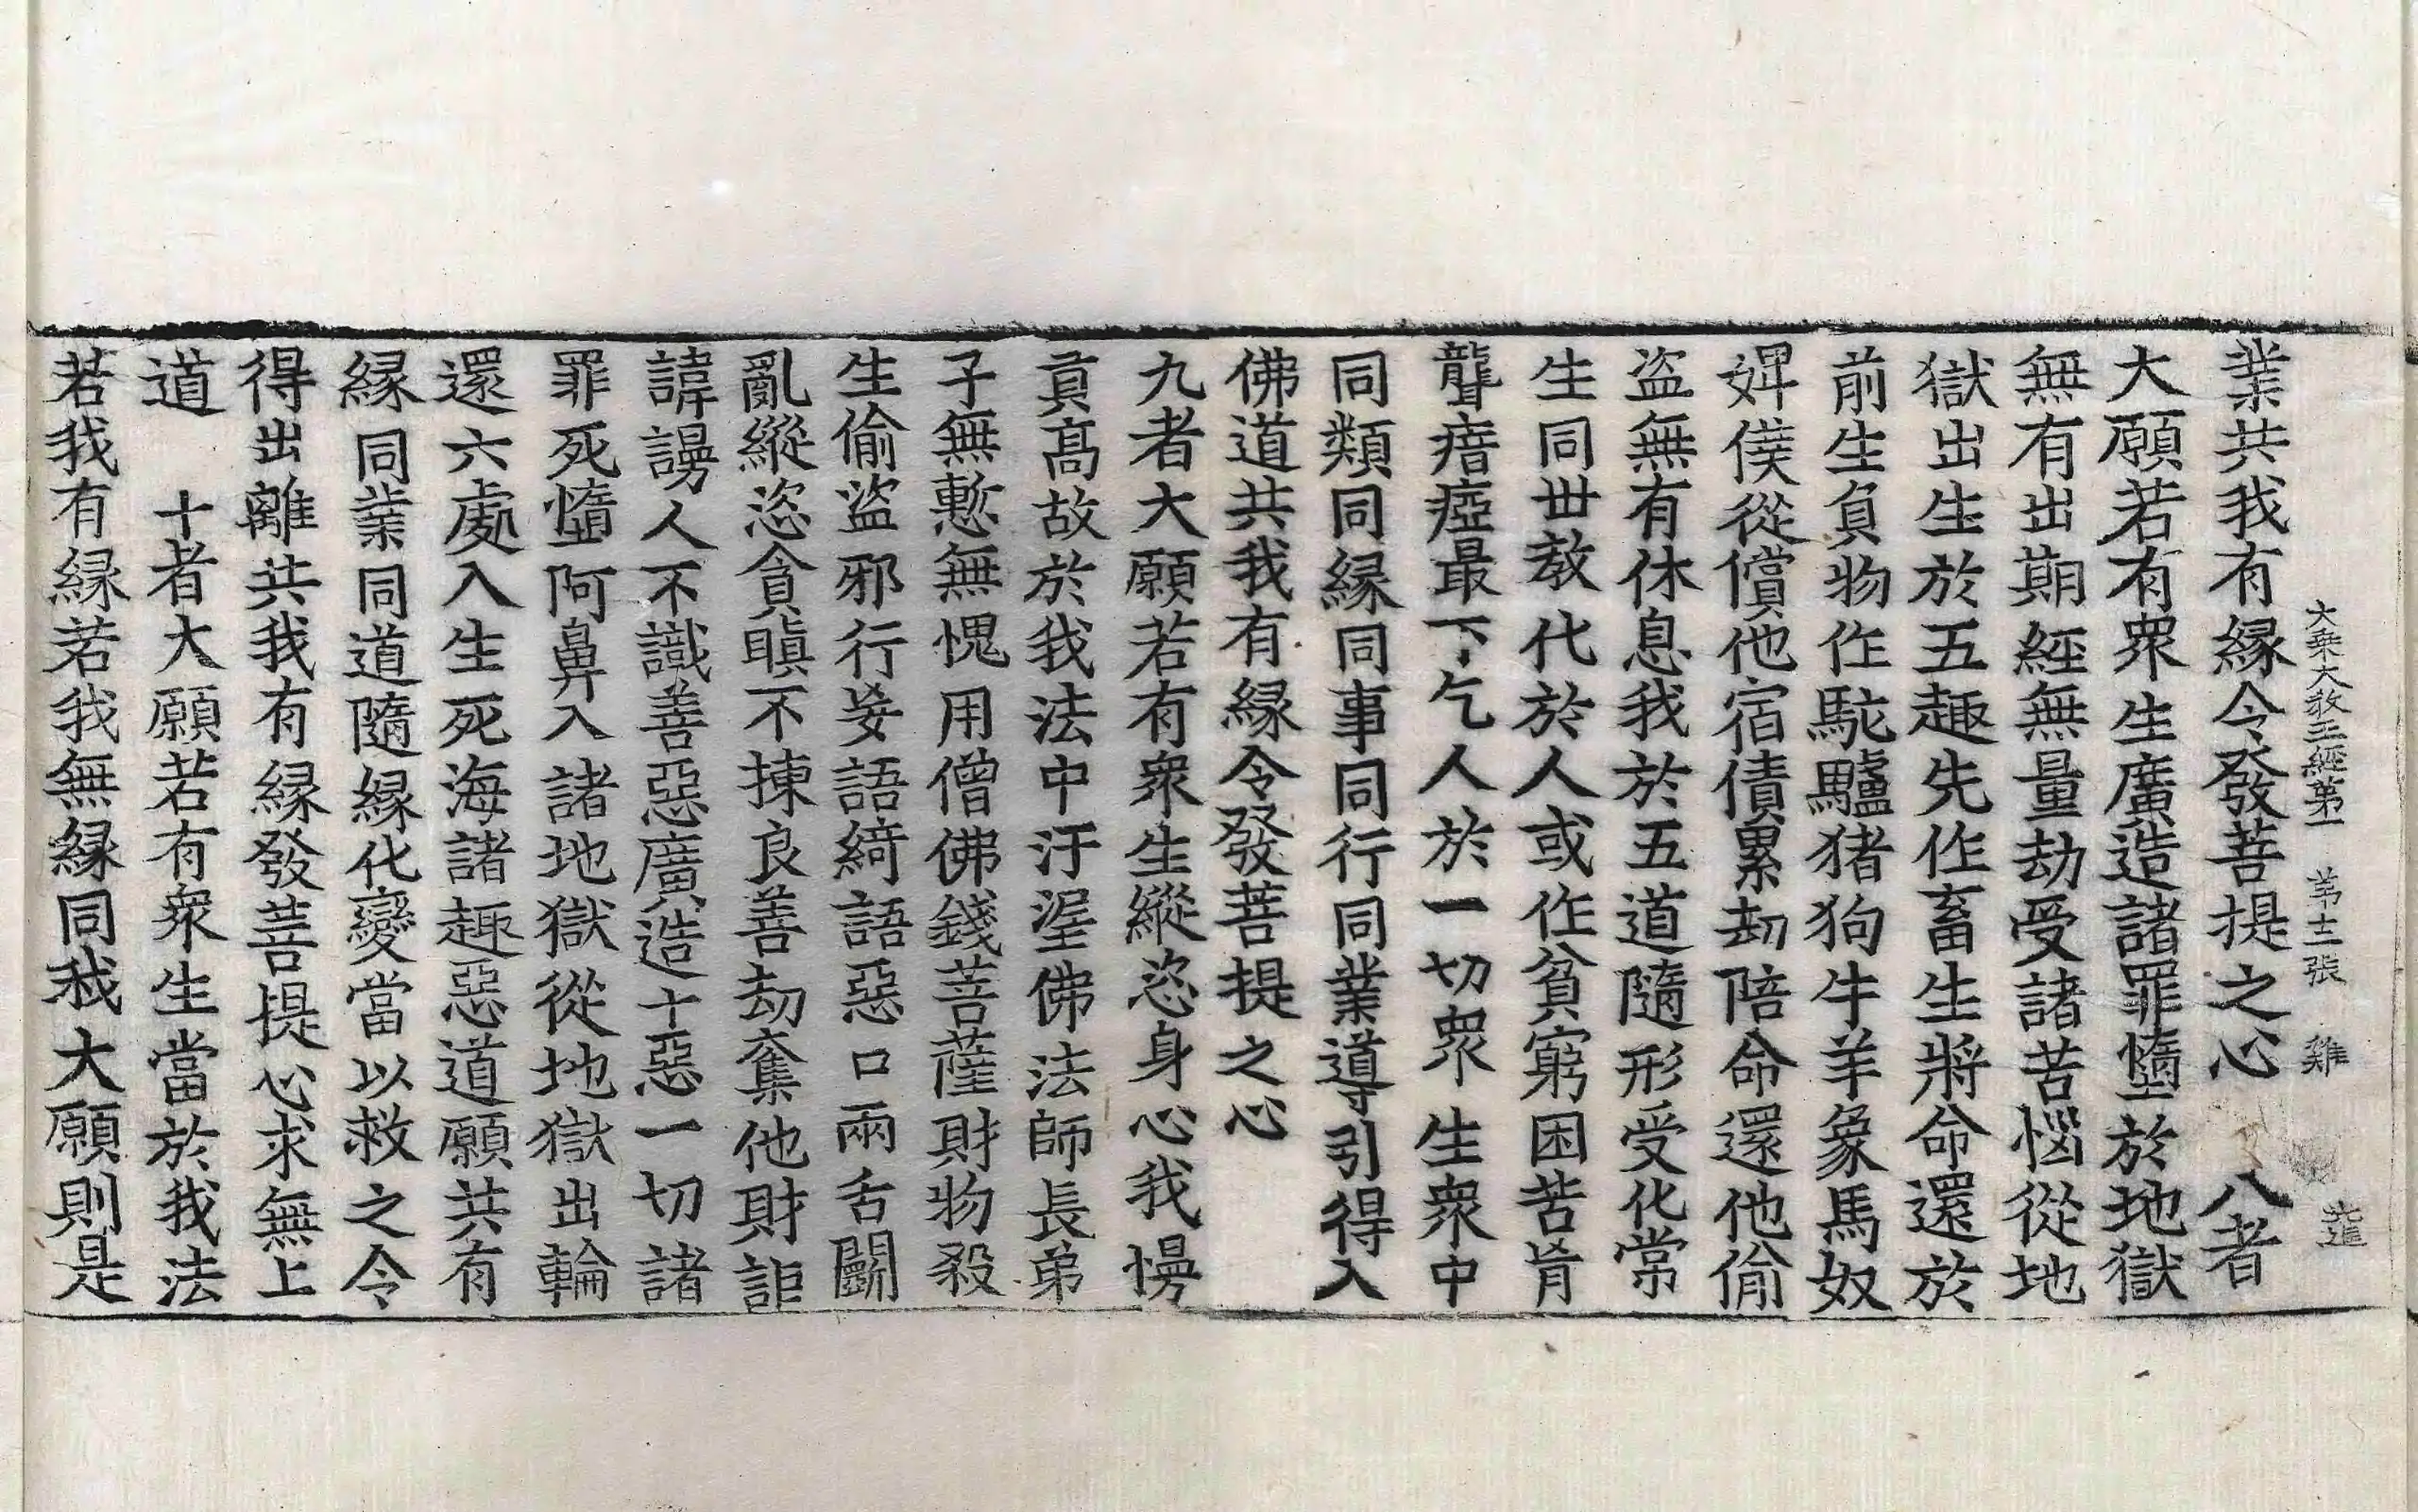 大乘大教王經第一　第十二張　雞
業共我有縁令發菩提之心　八者
大願若有衆生廣造諸罪墮於地獄
無有出期經無量劫受諸苦惱從地
獄出生於五趣先作畜生將命還於
前生負物作駝驢猪狗牛羊象馬奴
婢僕從償他宿債累劫陪命還他偷
盜無有休息我於五道隨形受化常
生同世教代於人或作貧窮困苦肓
聾瘖瘂最下乞人於一切衆生衆中
同類同縁同事同行同業導引得入
佛道共我有縁令發菩提之心
九者大願若有衆生縱恣身心我慢
貢髙故於我法中汙渥佛法師長弟
子無慙無愧用僧佛錢菩薩財物殺
生偷盜邪行妄語綺語惡口兩舌鬪
亂縱恣貪瞋不揀良善劫奪他財詎
諱謾人不識善惡廣造十惡一切諸
罪死墮阿鼻入諸地獄從地獄出輪
還六處入生死海諸趣惡道願共有
縁同業同道隨縁化變當以救之令
得出離共我有縁發菩提心求無上
道　十者大願若有衆生當於我法
若我有縁若我無縁同我大願則是